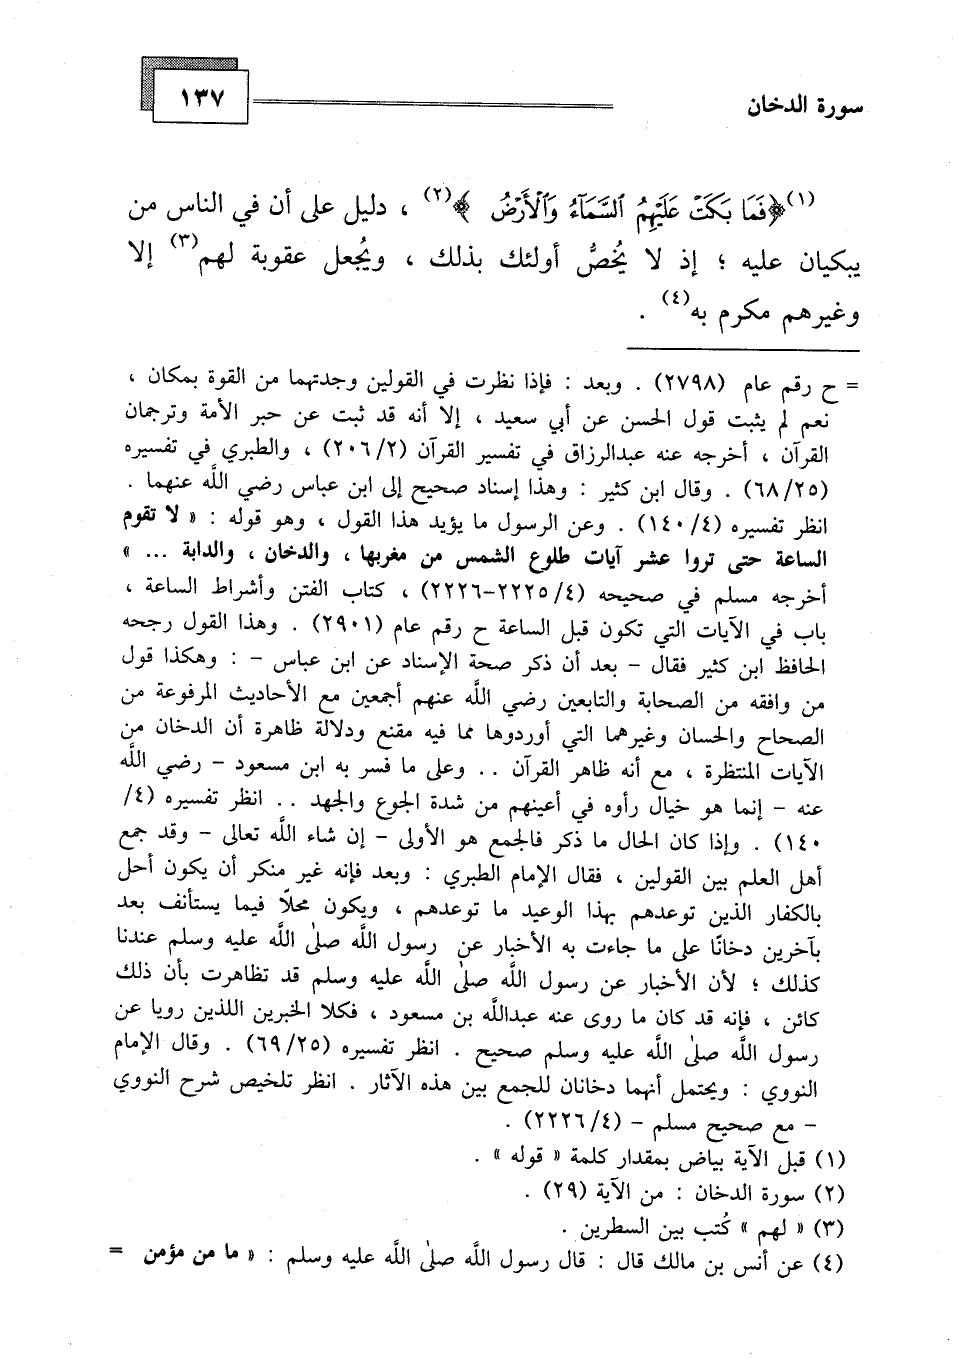 سورة الدخان
١٣٧
(١) ﴿فَمَا بَكَتْ عَلَيْهِمُ ٱلسَّمَآءُ وَٱلْأَرْضُ ﴾(٢) ، دليل على أن في الناس من
يبكيان عليه ؛ إذ لا يُخصُّ أولئك بذلك ، ويُجعل عقوبة لهم(٣) إلا
وغيرهم مكرم به(٤) .
= ح رقم عام (٢٧٩٨) . وبعد : فإذا نظرت في القولين وجدتهما من القوة بمكان ،
نعم لم يثبت قول الحسن عن أبي سعيد ، إلا أنه قد ثبت عن حبر الأمة وترجمان
القرآن ، أخرجه عنه عبدالرزاق في تفسير القرآن (٢٠٦/٢) ، والطبري في تفسيره
(٦٨/٢٥) . وقال ابن كثير : وهذا إسناد صحيح إلى ابن عباس رضي الله عنهما .
انظر تفسيره (١٤٠/٤) . وعن الرسول ما يؤيد هذا القول ، وهو قوله : « لا تقوم
الساعة حتى تروا عشر آيات طلوع الشمس من مغربها ، والدخان ، والدابة ... »
أخرجه مسلم في صحيحه (٤/ ٢٢٢٥-٢٢٢٦) ، كتاب الفتن وأشراط الساعة ،
باب في الآيات التي تكون قبل الساعة ح رقم عام (٢٩٠١) . وهذا القول رجحه
الحافظ ابن كثير فقال - بعد أن ذكر صحة الإسناد عن ابن عباس - : وهكذا قول
من وافقه من الصحابة والتابعين رضي الله عنهم أجمعين مع الأحاديث المرفوعة من
الصحاح والحسان وغيرهما التي أوردوها مما فيه مقنع ودلالة ظاهرة أن الدخان من
الآيات المنتظرة ، مع أنه ظاهر القرآن .. وعلى ما فسر به ابن مسعود - رضي الله
عنه - إنما هو خيال رأوه في أعينهم من شدة الجوع والجهد .. انظر تفسيره (٤/
١٤٠) . وإذا كان الحال ما ذكر فالجمع هو الأولى - إن شاء الله تعالى - وقد جمع
أهل العلم بين القولين ، فقال الإمام الطبري : وبعد فإنه غير منكر أن يكون أحل
بالكفار الذين توعدهم بهذا الوعيد ما توعدهم ، ويكون محلًا فيما يستأنف بعد
بآخرين دخانًا على ما جاءت به الأخبار عن رسول الله صلى الله عليه وسلم عندنا
كذلك ؛ لأن الأخبار عن رسول الله صلى الله عليه وسلم قد تظاهرت بأن ذلك
كائن ، فإنه قد كان ما روى عنه عبدالله بن مسعود ، فكلا الخبرين اللذين رويا عن
رسول الله صلى الله عليه وسلم صحيح . انظر تفسيره (٦٩/٢٥) . وقال الإمام
النووي : ويحتمل أنهما دخانان للجمع بين هذه الآثار . انظر تلخيص شرح النووي
- مع صحيح مسلم - (٢٢٢٦/٤) .
(١) قبل الآية بياض بمقدار كلمة « قوله » .
(٢) سورة الدخان : من الآية (٢٩) .
(٣) « لهم » كُتب بين السطرين .
(٤) عن أنس بن مالك قال : قال رسول الله صلى الله عليه وسلم : « ما من مؤمن =